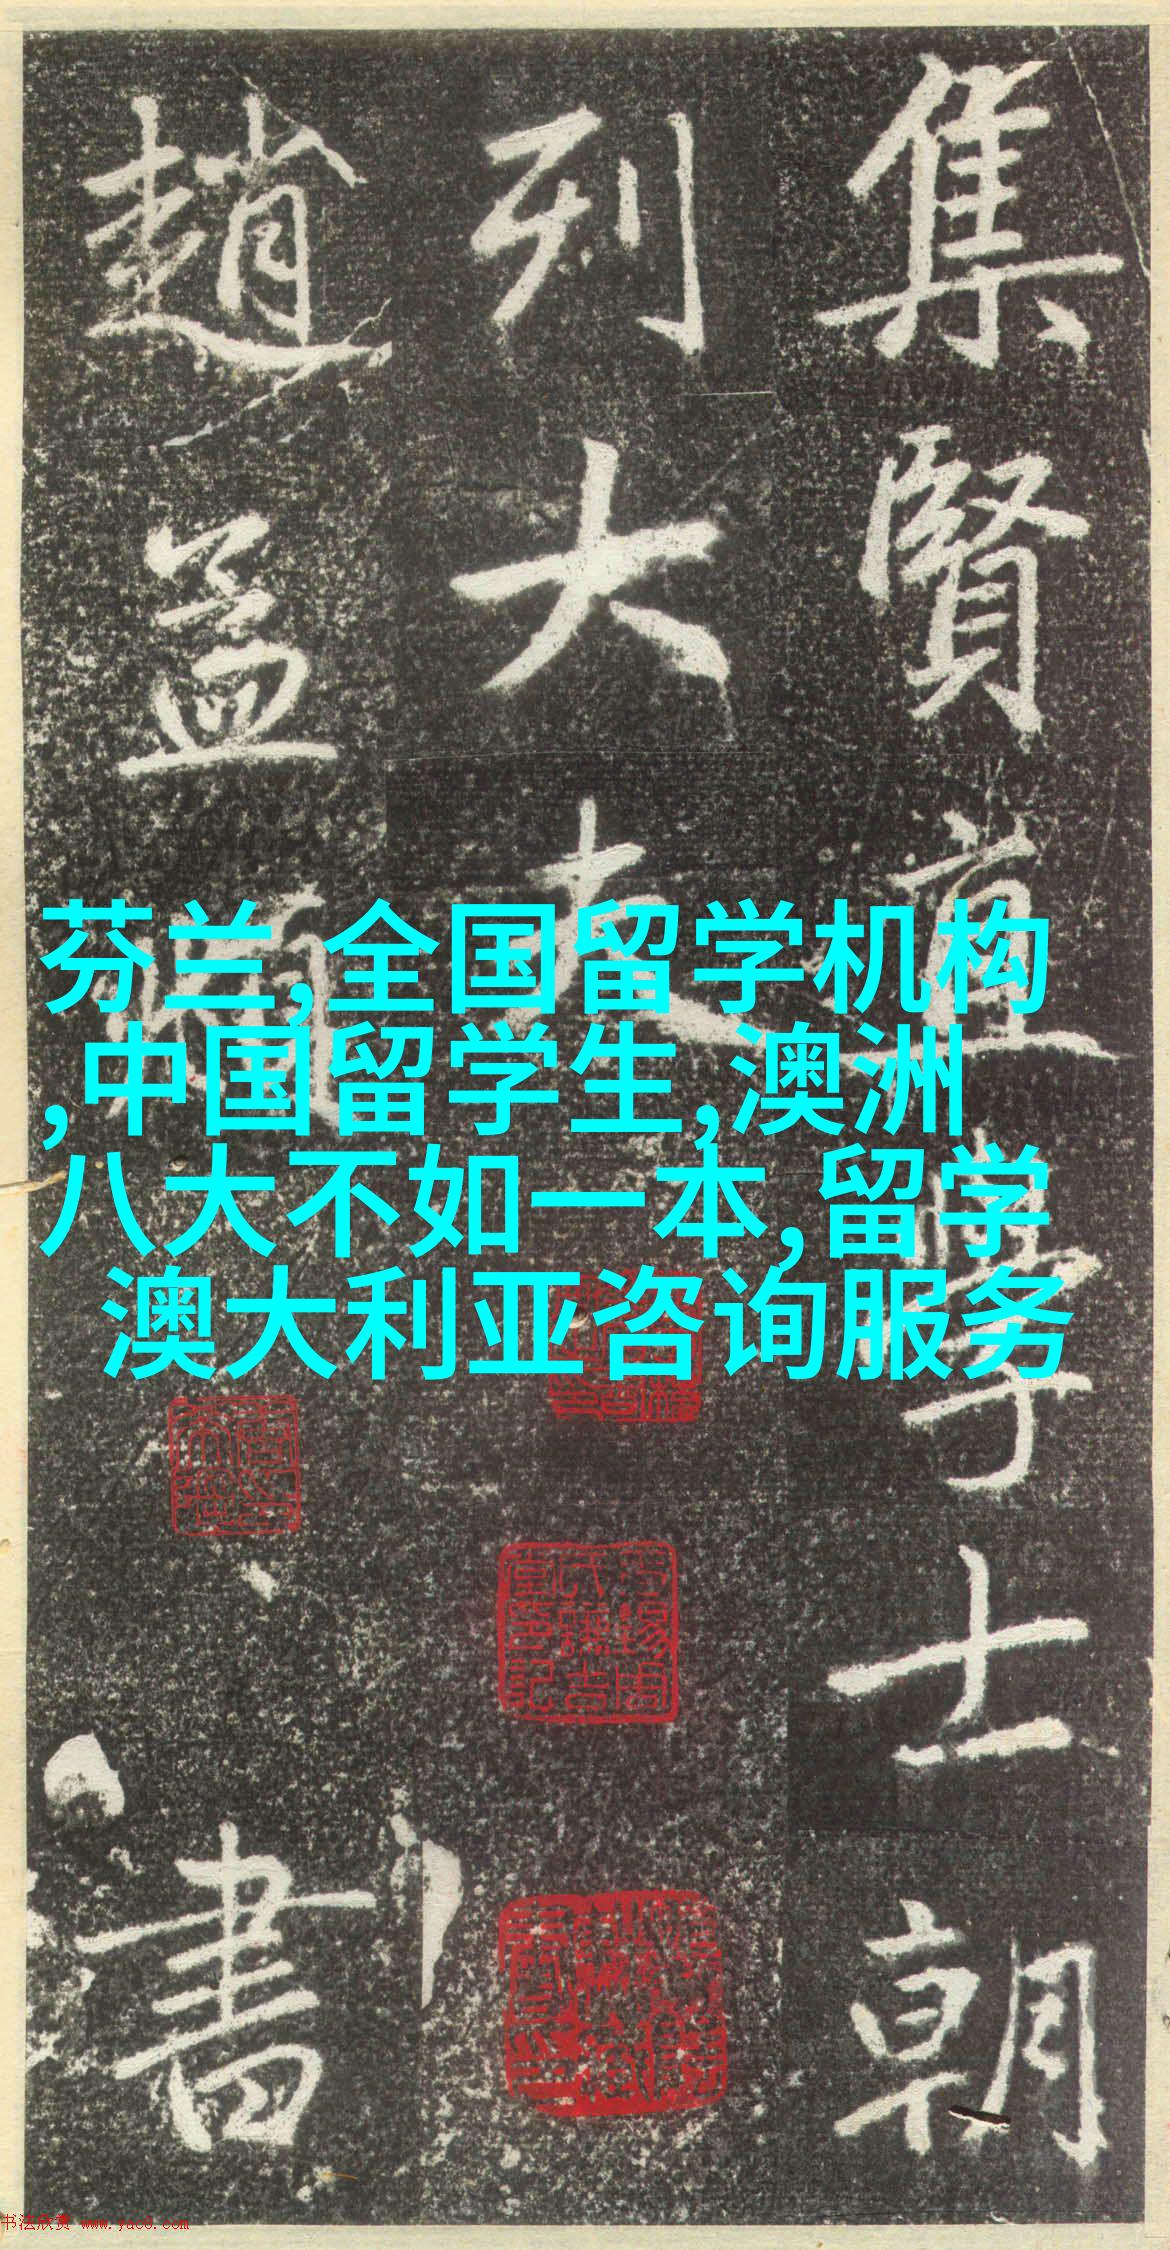 集賢直學士朝
列大夫
趙孟頫
書
芬兰,全国留学机构
,中国留学生,澳洲
八大不如一本,留学
澳大利亚咨询服务
书法欣赏 www.yac8.com